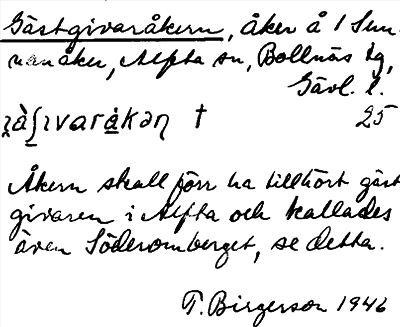 Gästgivaråkern, åker å 1 Sun-
nanåker, Alfta sn, Bollnäs tg,
Gävl. l.
†
25
Åkern skall förr ha tillhört gäst
givaren i Alfta och kallades
även Söderomberget, se detta.
T. Birgerson 1946